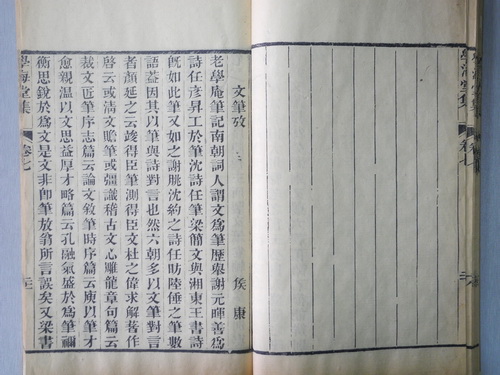 學海堂集 卷七
文筆攷 侯康
老學庵筆記南朝詞人謂文爲筆歷舉謝元暉善爲
詩任彥昇工於筆沈詩任筆梁簡文與湘東王書詩
旣如此筆又如之謝朓沈約之詩任昉陸倕之筆數
語葢因其以筆與詩對言也然六朝多以文筆對言
者顏延之云竣得臣筆測得臣文杜之偉求解著作
啓云或淸文贍筆或彊識稽古文心雕龍章句篇云
裁文匠筆序志篇云論文敘筆時序篇云庾以筆才
愈親溫以文思益厚才略篇云孔融氣盛於爲筆禰
衡思銳於爲文是文非卽筆放翁所言誤矣又梁書
學海堂集 卷七